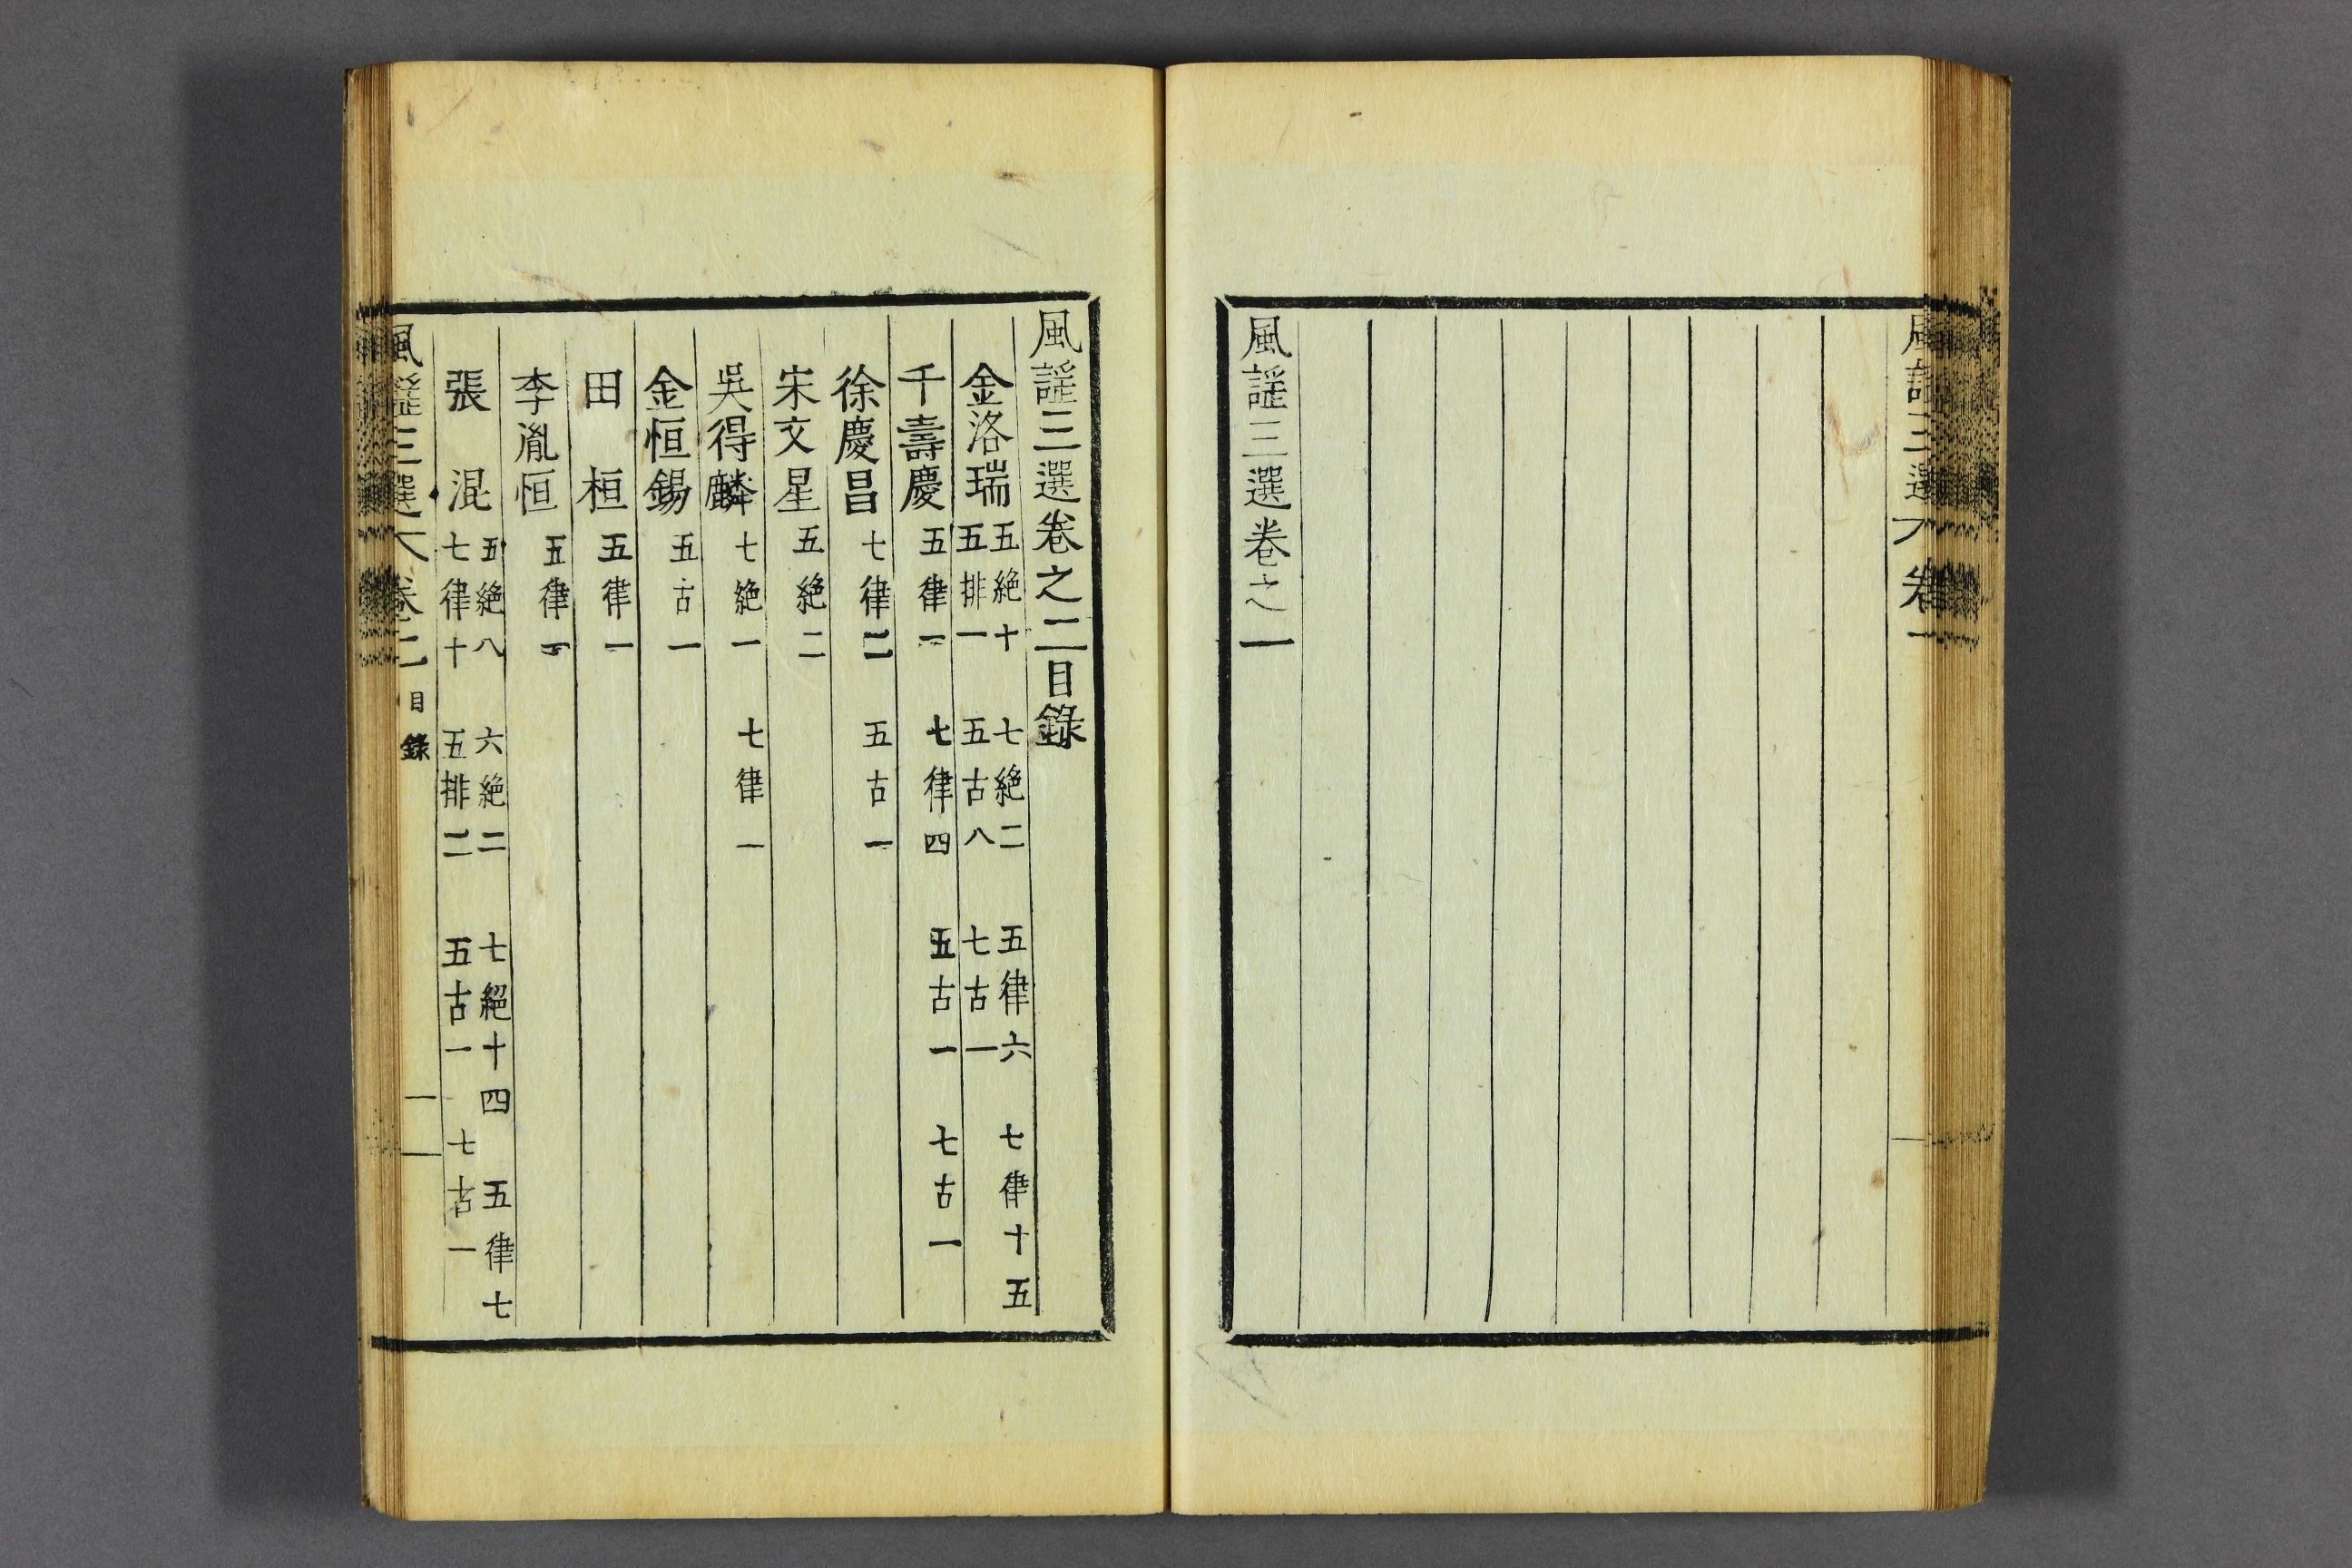 風謡三選 卷一
風謡三選卷之一
風謡三選卷之二目錄
金洛瑞 五絕十 七絕二 五律六 七律十五
五排一 五古八 七古一
千壽慶 五律一 七律四 五古一 七古一
徐慶昌 七律二 五古一
宋文星 五絕二
吳得麟 七絕一 七律一
金恒錫 五古一
田桓 五律一
李胤恒 五律一
張混 五絕八 六絕二 七絕十四 五律七
七律十 五排二 五古一 七古一
風謡三選 卷之二 目錄 一